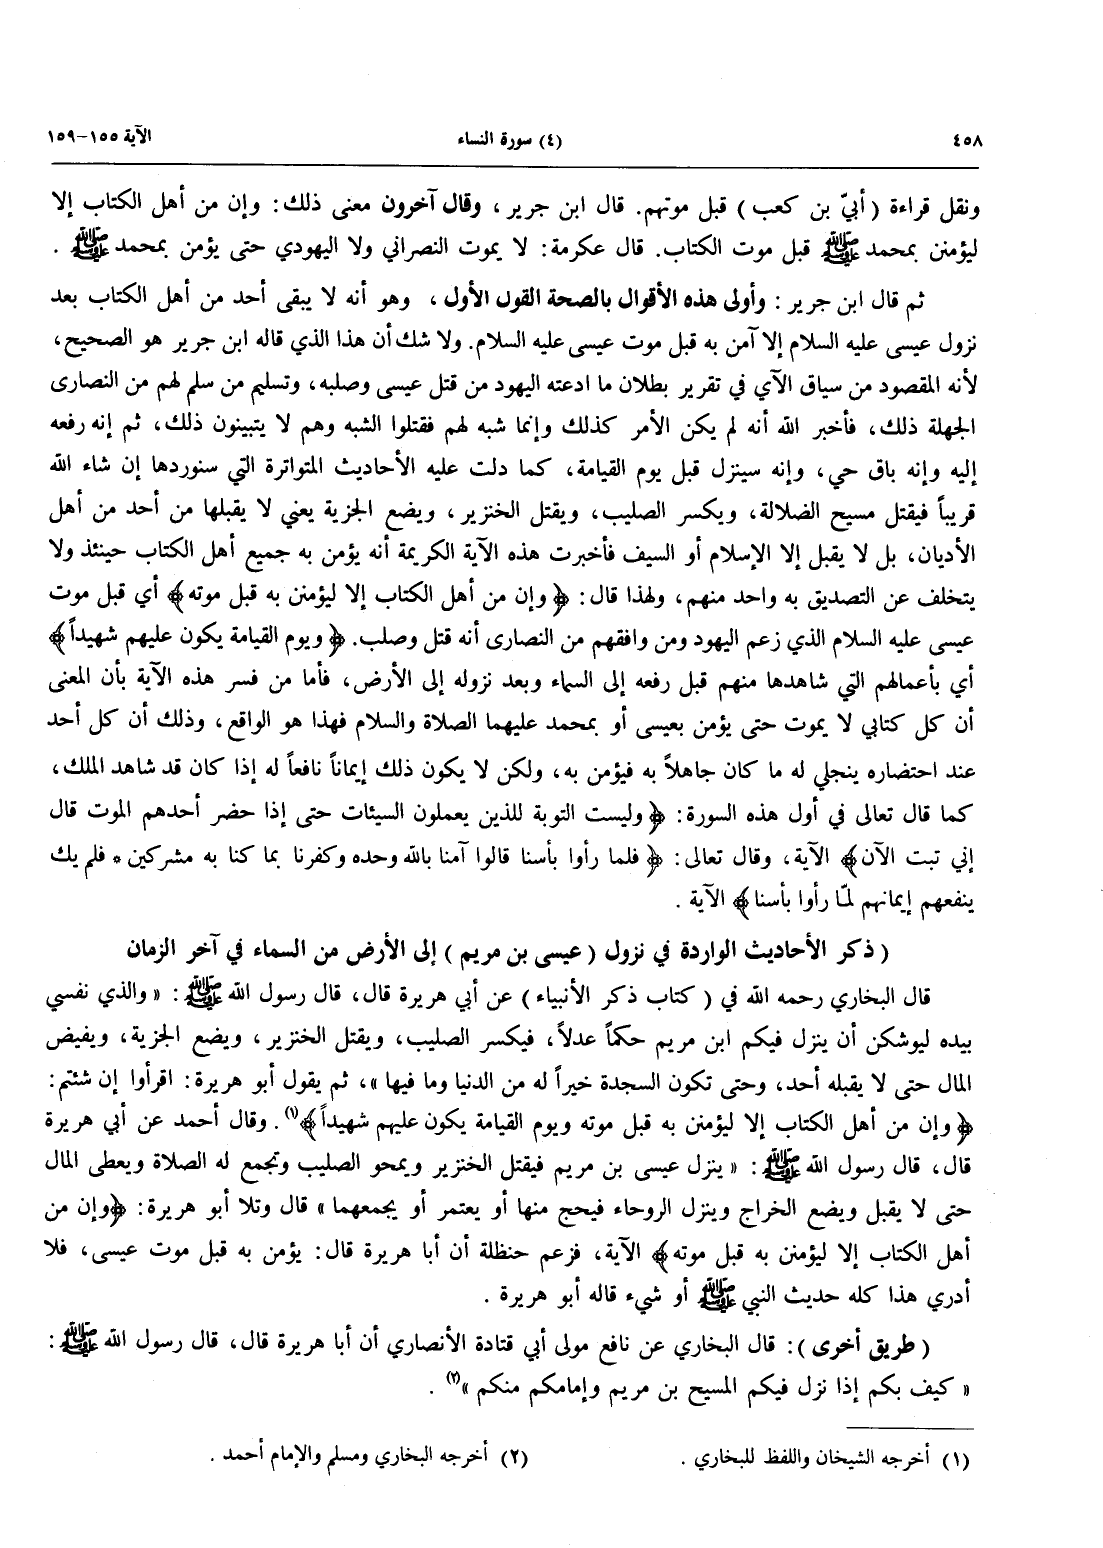 ٤٥٨ (٤) سورة النساء الآية ١٥٥-١٥٩
ونقل قراءة (أبيّ بن كعب) قبل موتهم. قال ابن جرير، وقال آخرون معنى ذلك: وإن من أهل الكتاب إلا
ليؤمنن بمحمد ﷺ قبل موت الكتاب. قال عكرمة: لا يموت النصراني ولا اليهودي حتى يؤمن بمحمد ﷺ .
ثم قال ابن جرير : وأولى هذه الأقوال بالصحة القول الأول ، وهو أنه لا يبقى أحد من أهل الكتاب بعد
نزول عيسى عليه السلام إلا آمن به قبل موت عيسى عليه السلام. ولا شك أن هذا الذي قاله ابن جرير هو الصحيح،
لأنه المقصود من سياق الآي في تقرير بطلان ما ادعته اليهود من قتل عيسى وصلبه، وتسليم من سلم لهم من النصارى
الجهلة ذلك، فأخبر الله أنه لم يكن الأمر كذلك وإنما شبه لهم فقتلوا الشبه وهم لا يتبينون ذلك، ثم إنه رفعه
إليه وإنه باق حي، وإنه سينزل قبل يوم القيامة، كما دلت عليه الأحاديث المتواترة التي سنوردها إن شاء الله
قريباً فيقتل مسيح الضلالة، ويكسر الصليب، ويقتل الخنزير، ويضع الجزية يعني لا يقبلها من أحد من أهل
الأديان، بل لا يقبل إلا الإسلام أو السيف فأخبرت هذه الآية الكريمة أنه يؤمن به جميع أهل الكتاب حينئذ ولا
يتخلف عن التصديق به واحد منهم، ولهذا قال: ﴿وإن من أهل الكتاب إلا ليؤمنن به قبل موته﴾ أي قبل موت
عيسى عليه السلام الذي زعم اليهود ومن وافقهم من النصارى أنه قتل وصلب. ﴿ويوم القيامة يكون عليهم شهيداً﴾
أي بأعمالهم التي شاهدها منهم قبل رفعه إلى السماء وبعد نزوله إلى الأرض، فأما من فسر هذه الآية بأن المعنى
أن كل كتابي لا يموت حتى يؤمن بعيسى أو بمحمد عليهما الصلاة والسلام فهذا هو الواقع، وذلك أن كل أحد
عند احتضاره ينجلي له ما كان جاهلاً به فيؤمن به، ولكن لا يكون ذلك إيماناً نافعاً له إذا كان قد شاهد الملك،
كما قال تعالى في أول هذه السورة: ﴿وليست التوبة للذين يعملون السيئات حتى إذا حضر أحدهم الموت قال
إني تبت الآن﴾ الآية، وقال تعالى: ﴿فلما رأوا بأسنا قالوا آمنا بالله وحده وكفرنا بما كنا به مشركين * فلم يك
ينفعهم إيمانهم لمّا رأوا بأسنا﴾ الآية .
( ذكر الأحاديث الواردة في نزول ( عيسى بن مريم ) إلى الأرض من السماء في آخر الزمان
قال البخاري رحمه الله في ( كتاب ذكر الأنبياء ) عن أبي هريرة قال، قال رسول الله ﷺ : « والذي نفسي
بيده ليوشكن أن ينزل فيكم ابن مريم حكماً عدلاً، فيكسر الصليب، ويقتل الخنزير، ويضع الجزية، ويفيض
المال حتى لا يقبله أحد، وحتى تكون السجدة خيراً له من الدنيا وما فيها »، ثم يقول أبو هريرة: اقرأوا إن شئتم:
﴿وإن من أهل الكتاب إلا ليؤمنن به قبل موته ويوم القيامة يكون عليهم شهيداً﴾(١). وقال أحمد عن أبي هريرة
قال، قال رسول الله ﷺ : « ينزل عيسى بن مريم فيقتل الخنزير ويمحو الصليب وتجمع له الصلاة ويعطى المال
حتى لا يقبل ويضع الخراج وينزل الروحاء فيحج منها أو يعتمر أو يجمعهما » قال وتلا أبو هريرة: ﴿وإن من
أهل الكتاب إلا ليؤمنن به قبل موته﴾ الآية، فزعم حنظلة أن أبا هريرة قال: يؤمن به قبل موت عيسى، فلا
أدري هذا كله حديث النبي ﷺ أو شيء قاله أبو هريرة .
( طريق أخرى ): قال البخاري عن نافع مولى أبي قتادة الأنصاري أن أبا هريرة قال، قال رسول الله ﷺ :
« كيف بكم إذا نزل فيكم المسيح بن مريم وإمامكم منكم »(٢) .
(١) أخرجه الشيخان واللفظ للبخاري . (٢) أخرجه البخاري ومسلم والإمام أحمد .